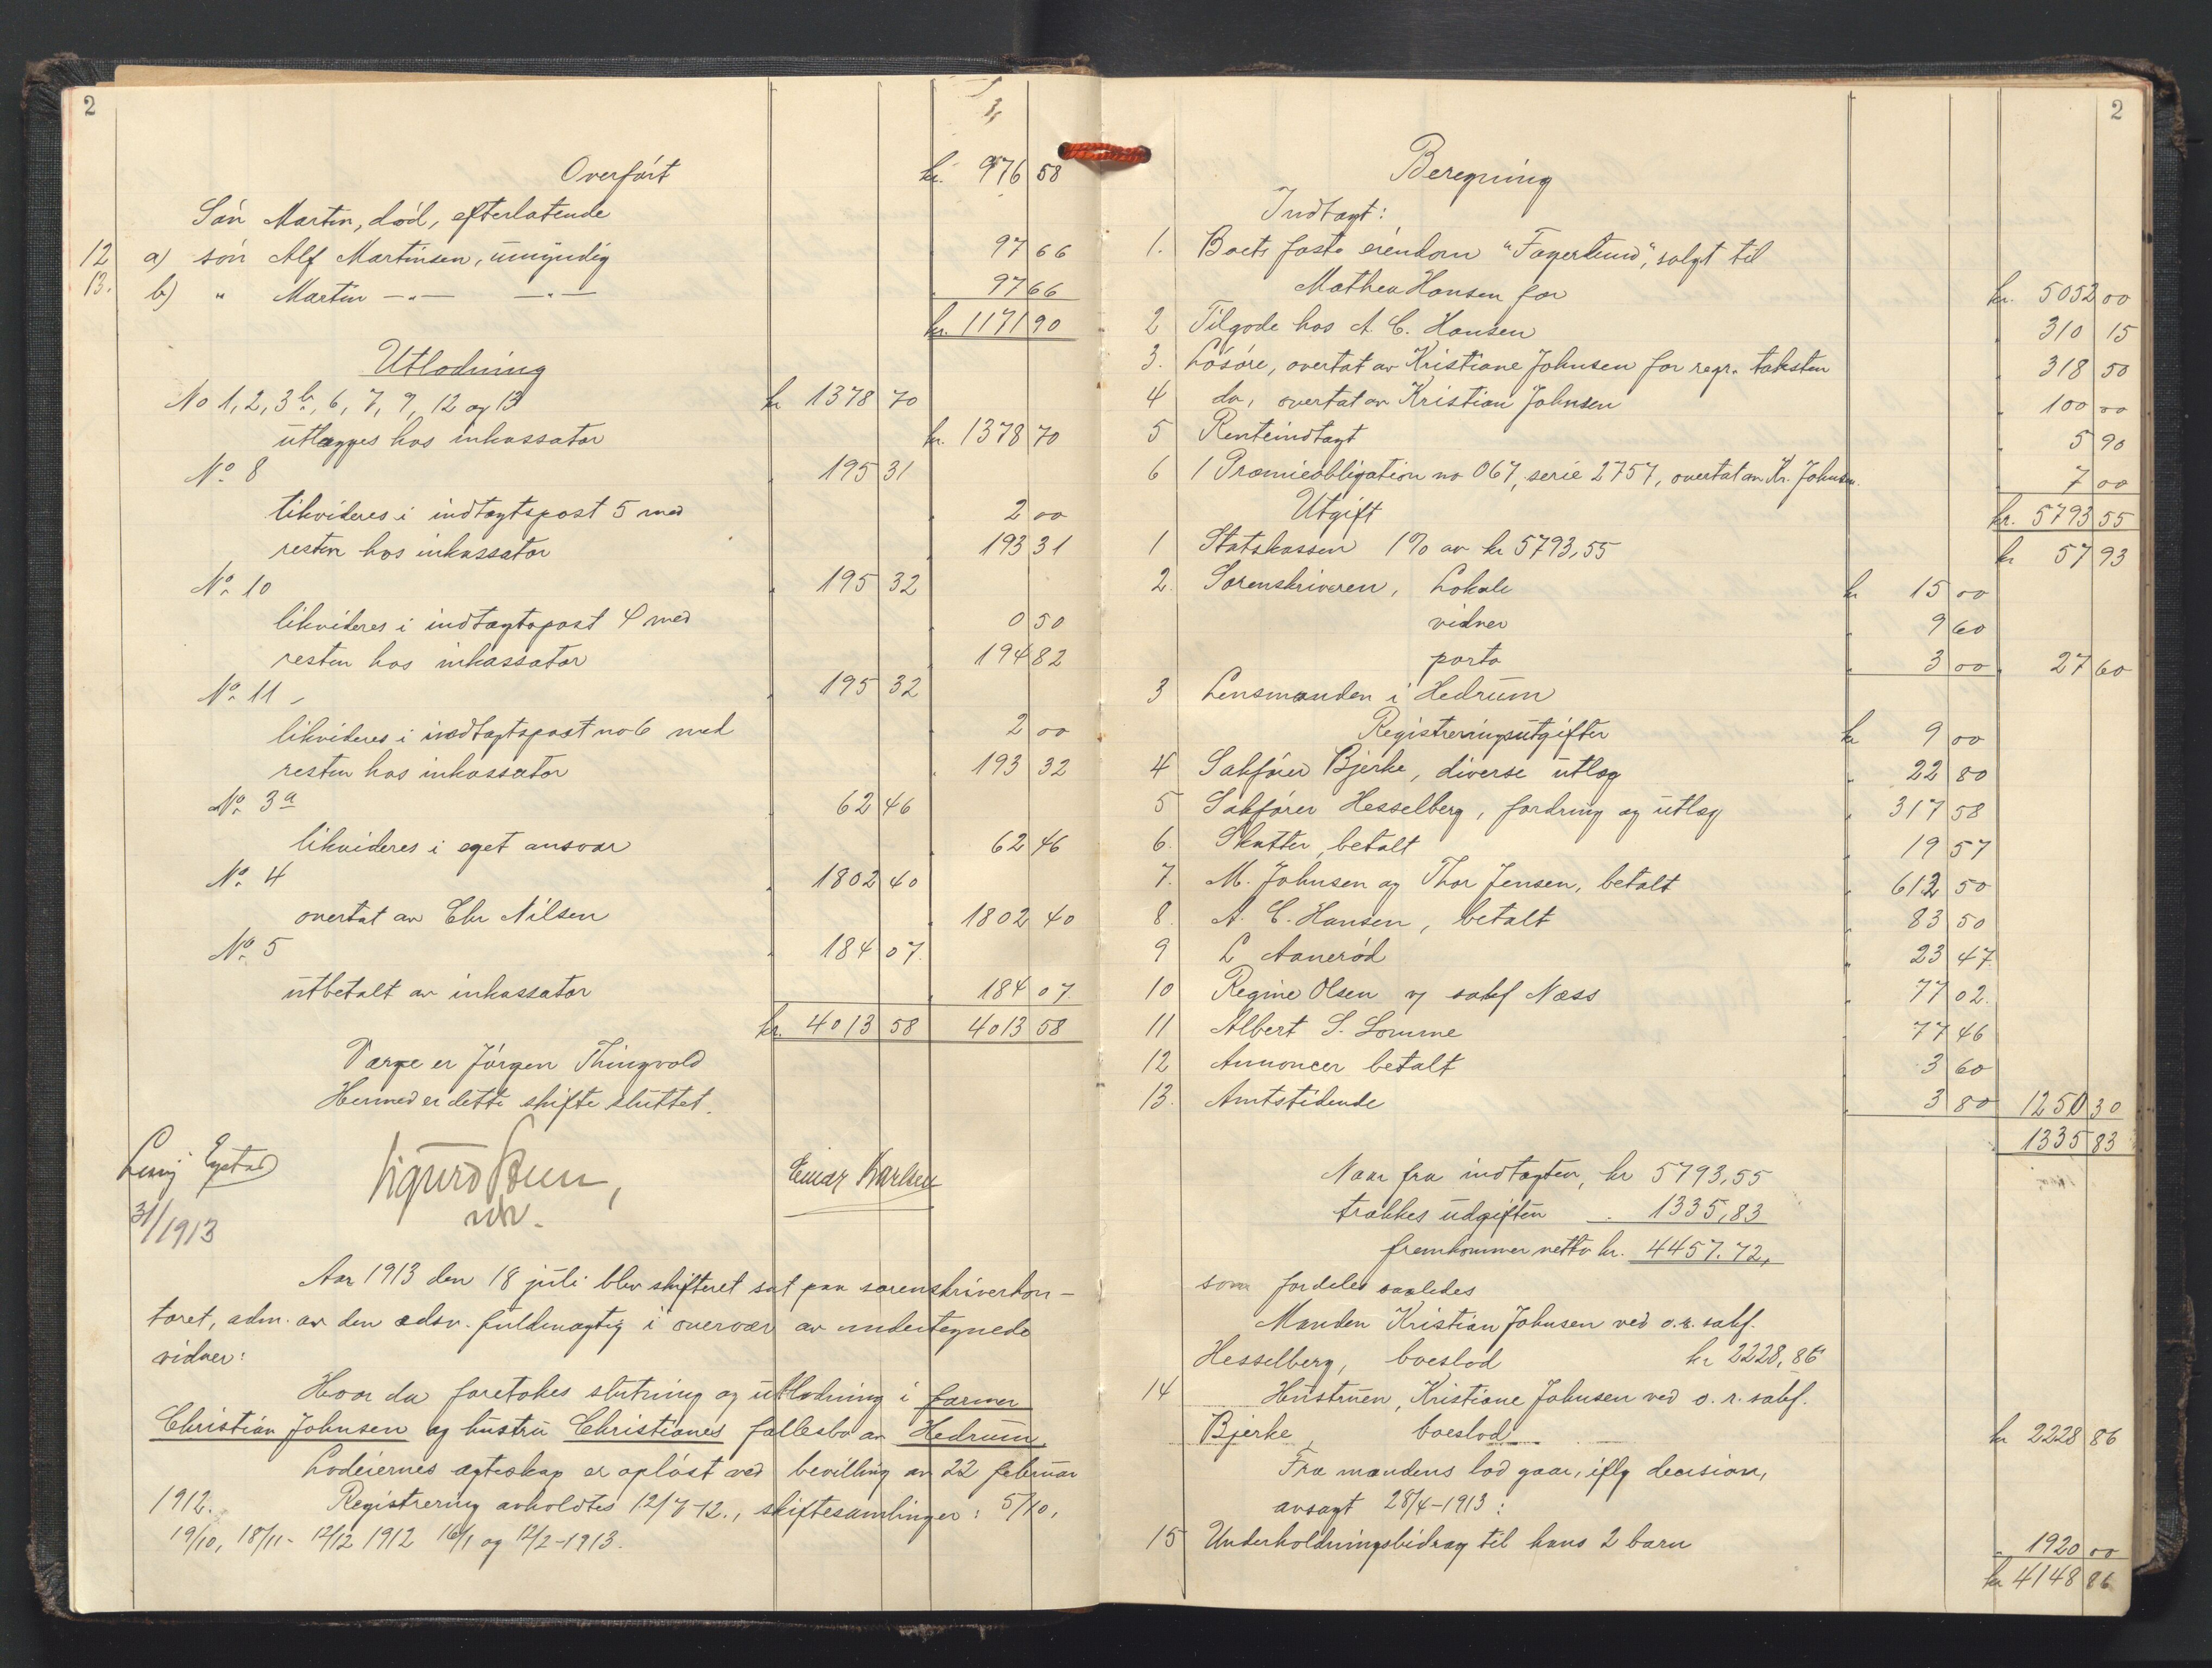 2
Overført kr. 976 58
Søn Martin, død, efterlatende
12 a) søn Alf Martinsen, umyndig " 97 66
13. b) " Martin —"— —"— " 97 66
kr. 1171 90
Utlodning
No 1, 2, 3b, 6, 7, 9, 12 og 13 kr 1378 70
utlægges hos inkassator kr. 1378 70
No. 8 " 195 31
likvideres i indtægtspost 5 med " 2 00
resten hos inkassator " 193 31
No. 10 " 195 32
likvideres i indtægtspost 4 med " 0 50
resten hos inkassator " 194 82
No. 11 " 195 32
likvideres i indtægtspost no 6 med " 2 00
resten hos inkassator " 193 32
No. 3a " 62 46
likvideres i eget ansvar " 62 46
No. 4 " 1802 40
overtat av Chr Nilsen " 1802 40
No. 5 " 184 07
utbetalt av inkassator " 184 07
kr. 4013 58 4013 58
Værge er Jørgen Thingvold
Hermed er dette skifte sluttet.
Einar Karlsen
31/ 1913
Aar 1913 den 18 juli blev skifteret sat paa sorenskriverkon-
toret, adm. av den edsv. fuldmægtig i overvær av undertegnede
vidner:
Hvor da foretokes slutning og utlodning i farmer
Christian Johnsen og hustru Christianes fællesbo av Hedrum
Lodeiernes egteskap er opløst ved bevilling av 22 februar
1912. Registrering avholdtes 12/7-12., skiftesamlinger: 5/10,
19/10, 18/11- 12/12 1912 16/1 og 12/2-1913.
2
Beregning
Indtægt:
1. Boets faste eiendom "Fagerlund", solgt til
Mathea Hansen for kr. 5052 00
2 Tilgode hos A. C. Hansen " 310 15
3. Løsøre, overtat av Kristiane Johnsen for regr. taksten " 318 50
4 do, overtat av Kristian Johnsen " 100 00
5 Renteindtægt " 5 90
6 1 Præmieobligation no 067, serie 2757, overtat av Kr. Johnsen. " 7 00
kr. 5793 55
Utgift
1 Statskassen 1% av kr 5793,55 kr 57 93
2. Sorenskriveren, Lokale kr 15 00
vidner " 9 60
porto " 3 00 " 27 60
3 Lensmanden i Hedrum
Registreringsutgifter kr 9 00
4 Sakfører Bjerke, diverse utlæg " 22 80
5 Sakfører Hesselberg, fordring og utlæg " 317 58
6. Skatter, betalt " 19 57
7. M. Johnsen og Thor Jensen, betalt " 612 50
8. A. C. Hansen, betalt " 83 50
9 L Aanerød " 23 47
10 Regine Olsen v/ sakf Næss " 77 02
11 Albert S. Lomme " 77 46
12 Annoncer betalt " 3 60
13. Amtstidende " 3 80 1250 30
" 1335 83
Naar fra indtægten, kr 5793,55
trækkes udgiften " 1335,83
fremkommer netto kr. 4457.72,
som fordeles saaledes
Manden Kristian Johnsen ved o.r. sakf.
Hesselberg, boeslod kr 2228,86
14 Hustruen, Kristiane Johnsen ved o. r. sakf.
Bjerke, boeslod kr 2228 86
Fra mandens lod gaar, iflg decision,
avsagt 28/4-1913:
15 Underholdningsbidrag til hans 2 barn " 1920 00
kr 4148 86